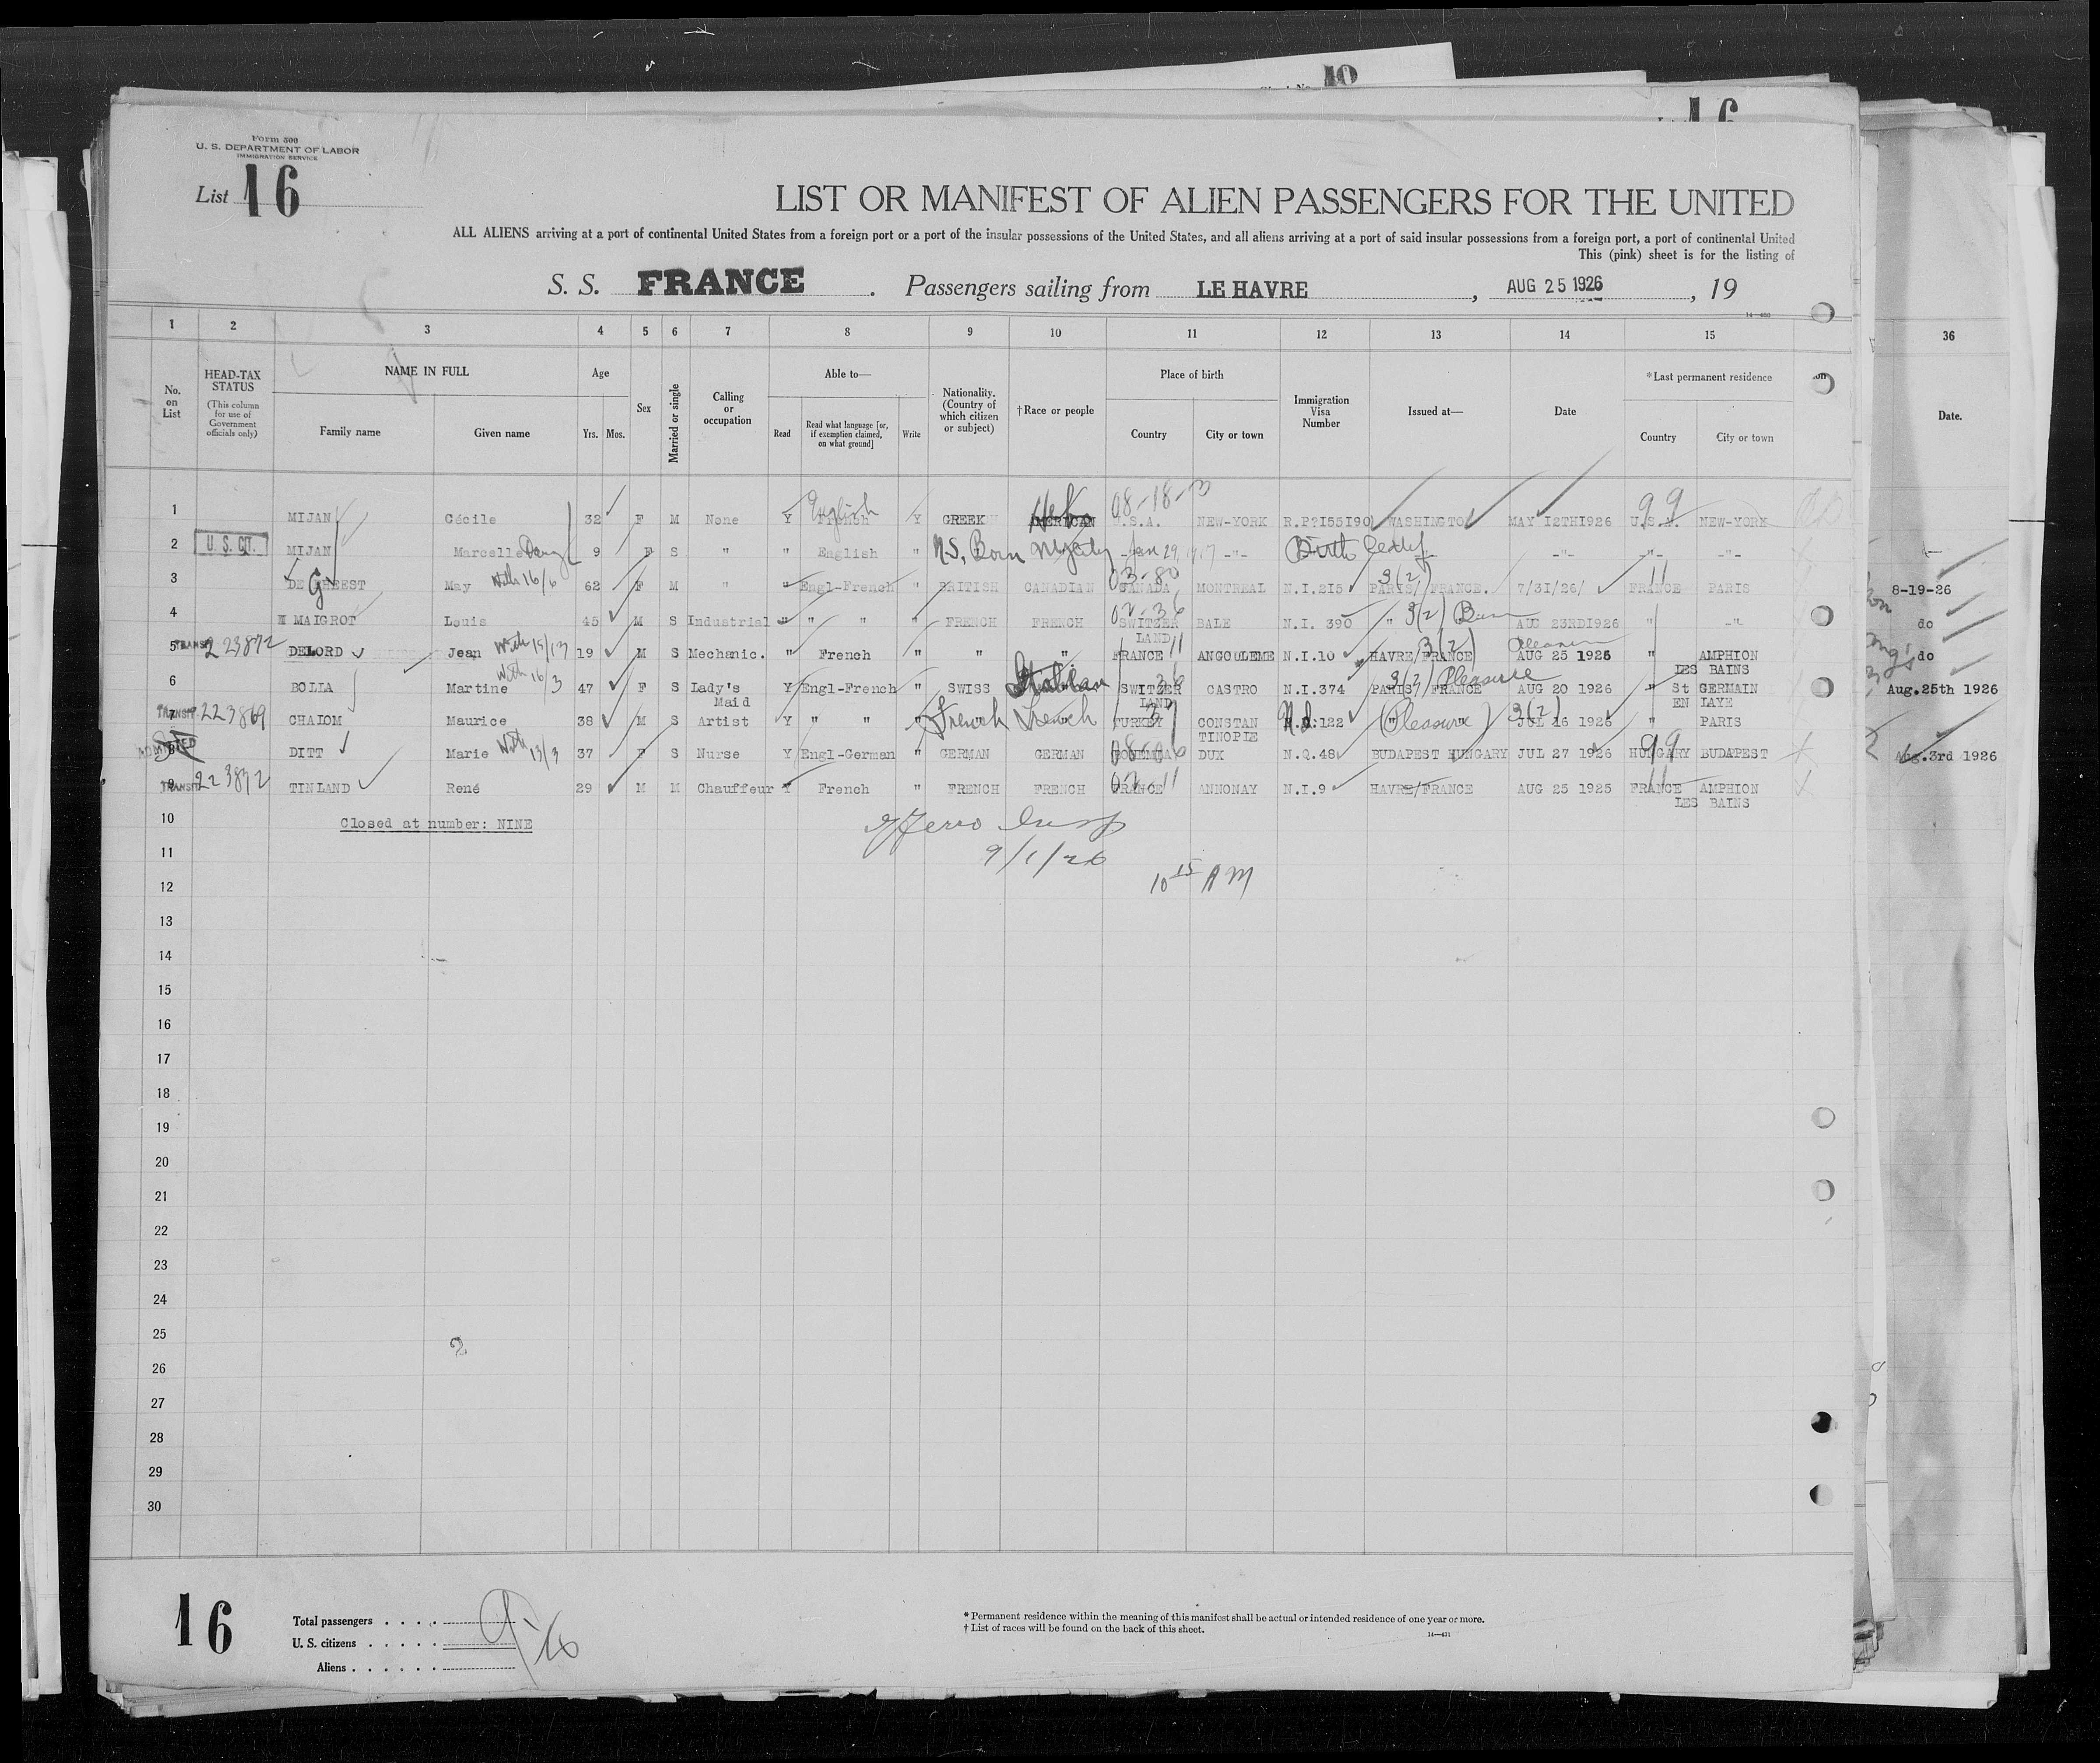 10
16
Form 500
U. S. DEPARTMENT OF LABOR
IMMIGRATION SERVICE
List 16
LIST OR MANIFEST OF ALIEN PASSENGERS FOR THE UNITED
ALL ALIENS arriving at a port of continental United States from a foreign port or a port of the insular possessions of the United States, and all aliens arriving at a port of said insular possessions from a foreign port, a port of continental United
This (pink) sheet is for the listing of
S. S. FRANCE . Passengers sailing from LE HAVRE , AUG 25 1926 , 19
1 2 3 4 5 6 7 8 9 10 11 12 13 14 15 36
No. on List
HEAD-TAX STATUS
(This column for use of Government officials only)
NAME IN FULL
Family name Given name
Age
Yrs. Mos.
Sex
Married or single
Calling or occupation
Able to—
Read Read what language [or, if exemption claimed, on what ground] Write
Nationality. (Country of which citizen or subject)
†Race or people
Place of birth
Country City or town
Immigration Visa Number
Issued at—
Date
*Last permanent residence
Country City or town
Date.
English Heb 08-18-3 99
1 MIJAN Cécile 32 F M None Y French Y GREEK AMERICAN U.S.A. NEW-YORK R.P?I55I90 WASHINGTO MAY I2THI926 U.S.A. NEW-YORK
2 U. S. CIT. MIJAN Marcelle Daug 9 F S " " English " U.S. Born NY City Jan 29, 1917 -"- Birth Certif -"- -"- -"-
3 DE GHEEST May With 16/6 62 F M " " Engl-French " BRITISH CANADIAN 03-80 CANADA MONTREAL N.I.215 3(2) PARIS/ FRANCE. 7/31/26/ 11 FRANCE PARIS 8-19-26
4 MAIGROT Louis 45 M S Industrial " " " " FRENCH FRENCH 02-36 SWITZER LAND BALE N.I. 390 " 3(2) Bus AUG 23RDI926 " -"- do
5 TRANSIT 223872 DELORD Jean With 15/17 19 M S Mechanic. " French " " " FRANCE 11 ANGOULEME N.I.10 HAVRE/FRANCE 3(2) Pleasure AUG 25 1926 " AMPHION LES BAINS do
6 BOLLA Martine With 16/3 47 F S Lady's Maid Y Engl-French " SWISS Italian SWITZER LAND 36 CASTRO N.I.374 PARIS/ FRANCE 3(2) Pleasure AUG 20 1926 " St GERMAIN EN LAYE Aug.25th 1926
7 TRANSIT 223869 CHAIOM Maurice 38 M S Artist Y " " " French French TURKEY 37 CONSTAN TINOPLE 122 " (Pleasure) " 3(2) JUL 16 1926 " PARIS
8 ADMITTED DITT Marie With 13/3 37 F S Nurse Y Engl-German " GERMAN GERMAN 08-06 BOHEMIA DUX N.Q.48 BUDAPEST HUNGARY JUL 27 1926 99 HUNGARY BUDAPEST Aug.3rd 1926
9 TRANSIT 223872 TINLAND René 29 M M Chauffeur Y French " FRENCH FRENCH 02-11 FRANCE ANNONAY N.I.9 HAVRE/FRANCE AUG 25 1925 11 FRANCE AMPHION LES BAINS
10 Closed at number: NINE
Insp
11 9/1/26
12 10 15 AM
13
14
15
16
17
18
19
20
21
22
23
24
25
2
26
27
28
29
30
16
Total passengers . . . .
U. S. citizens . . . . .
Aliens . . . . . .
* Permanent residence within the meaning of this manifest shall be actual or intended residence of one year or more.
† List of races will be found on the back of this sheet.
14—431